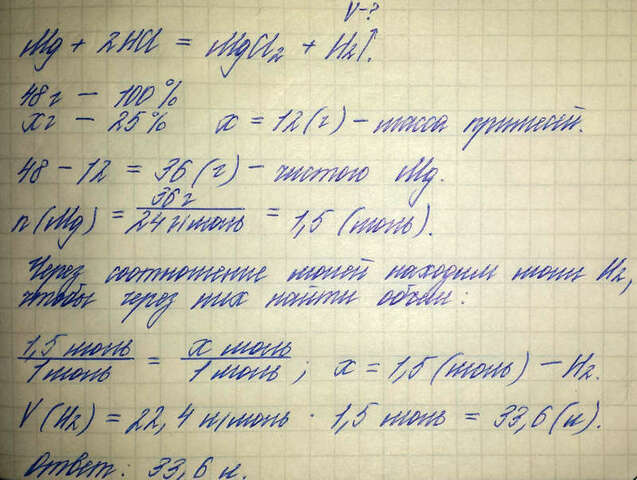 V-?
Mg + 2HCl = MgCl₂ + H₂↑.
48 г - 100 %
x г - 25 % x = 12 (г) - масса примесей.
48 - 12 = 36 (г) - чистого Mg.
n(Mg) = 36 г / 24 г/моль = 1,5 (моль).
Через соотношение молей находим моли H₂,
чтобы через них найти объём:
1,5 моль / 1 моль = x моль / 1 моль ; x = 1,5 (моль) - H₂.
V(H₂) = 22,4 л/моль · 1,5 моль = 33,6 (л).
Ответ: 33,6 л.